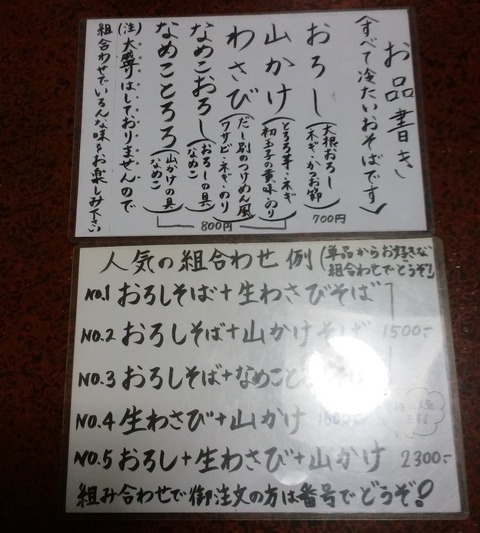 お品書き
(すべて冷たいおそばです)
おろし(大根おろし ネギ・かつお節) 700円
山かけ(とろろ芋・ネギ 初玉子の黄味・のり)
わさび(だし別のつけめん風 ワサビ・ネギ・のり)
なめこおろし(おろしの具 なめこ)
なめことろろ(山かけの具 なめこ)
800円
(注)大盛りはしておりませんので
組合わせでいろんな味をお楽しみ下さい
人気の組合わせ例(単品からお好きな組合わせでどうぞ!)
NO.1 おろしそば+生わさびそば
NO.2 おろしそば+山かけそば 1500-
NO.3 おろしそば+なめこと
NO.4 生わさび+山かけ
NO.5 おろし+生わさび+山かけ 2300-
組み合わせで御注文の方は番号でどうぞ!